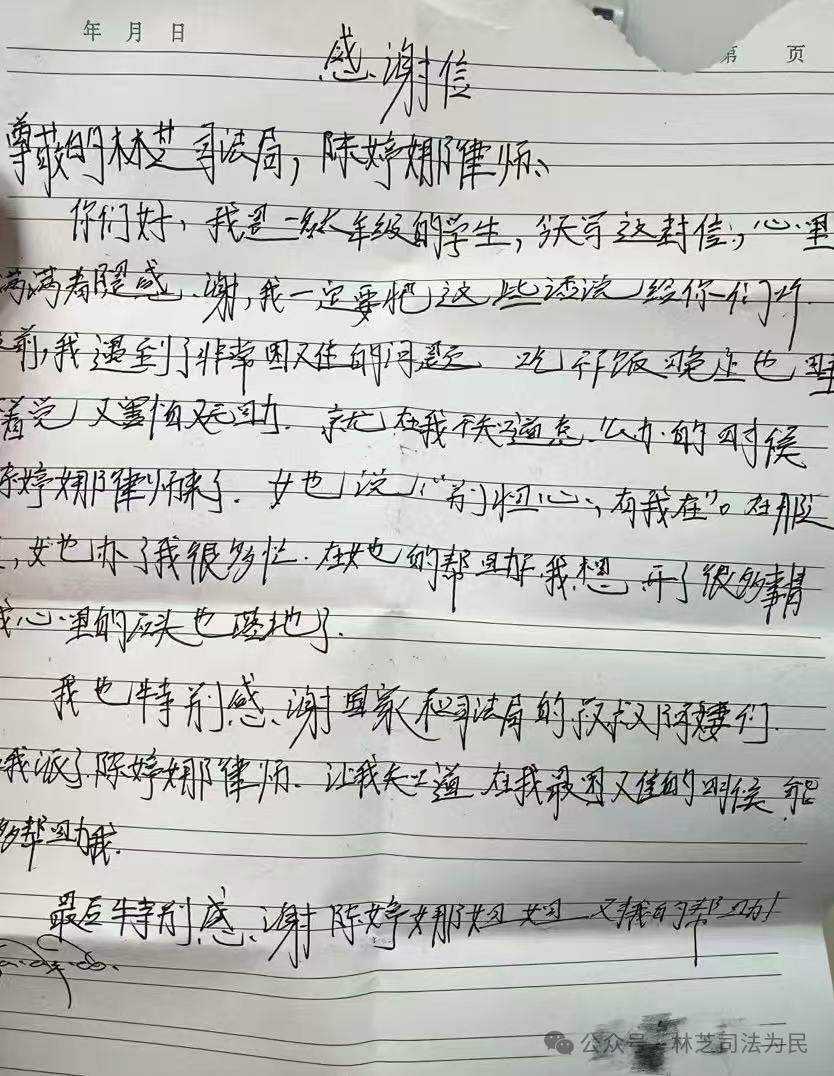 年 月 日
第 页
感谢信
尊敬的林芝司法局，陈婷娜律师、
你们好，我是一名六年级的学生，今天写这封信，心里
满满都是感谢，我一定要把这些话说给你们听.
之前，我遇到了非常困难的问题 吃不下饭 晚上也睡
着觉 又害怕又无助. 就在我不知道怎么办的时候
陈婷娜律师来了. 她说"别担心，有我在"。在那段
，她办了我很多忙. 在她的帮助下，我想开了很多事情
我心里的石头也落地了.
我也特别感谢国家和司法局的叔叔阿姨们.
我派了陈婷娜律师. 让我知道 在我最困难的时候 能
多帮助我.
最后特别感谢陈婷娜姐姐 对我的帮助!
公众号 · 林芝司法为民